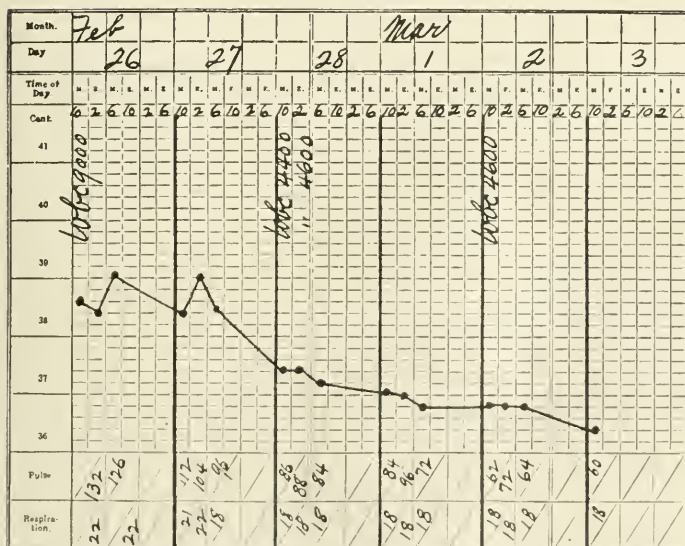 Month. Feb Mar
Day 26 27 28 1 2 3
Time of Day M. E. M. E. M. E. M. E. M. E. M. E. M. E. M. E. M. E. M. E. M. E. M. E. M. E. M. E. M. E. M. E. M. E. M. E.
Cent. 10 2 6 10 2 6 10 2 6 10 2 6 10 2 6 10 2 6 10 2 6 10 2 6 10 2 6 10 2 6 10 2 6 10 2 6
Wbc 9000
Wbc 4400
" 4600
Wbc 4600
41
40
39
38
37
36
Pulse 132 126 112 104 96 86 88 84 84 96 72 62 72 64 60
Respiration. 22 22 21 22 18 18 18 18 18 18 18 18 18 18 18